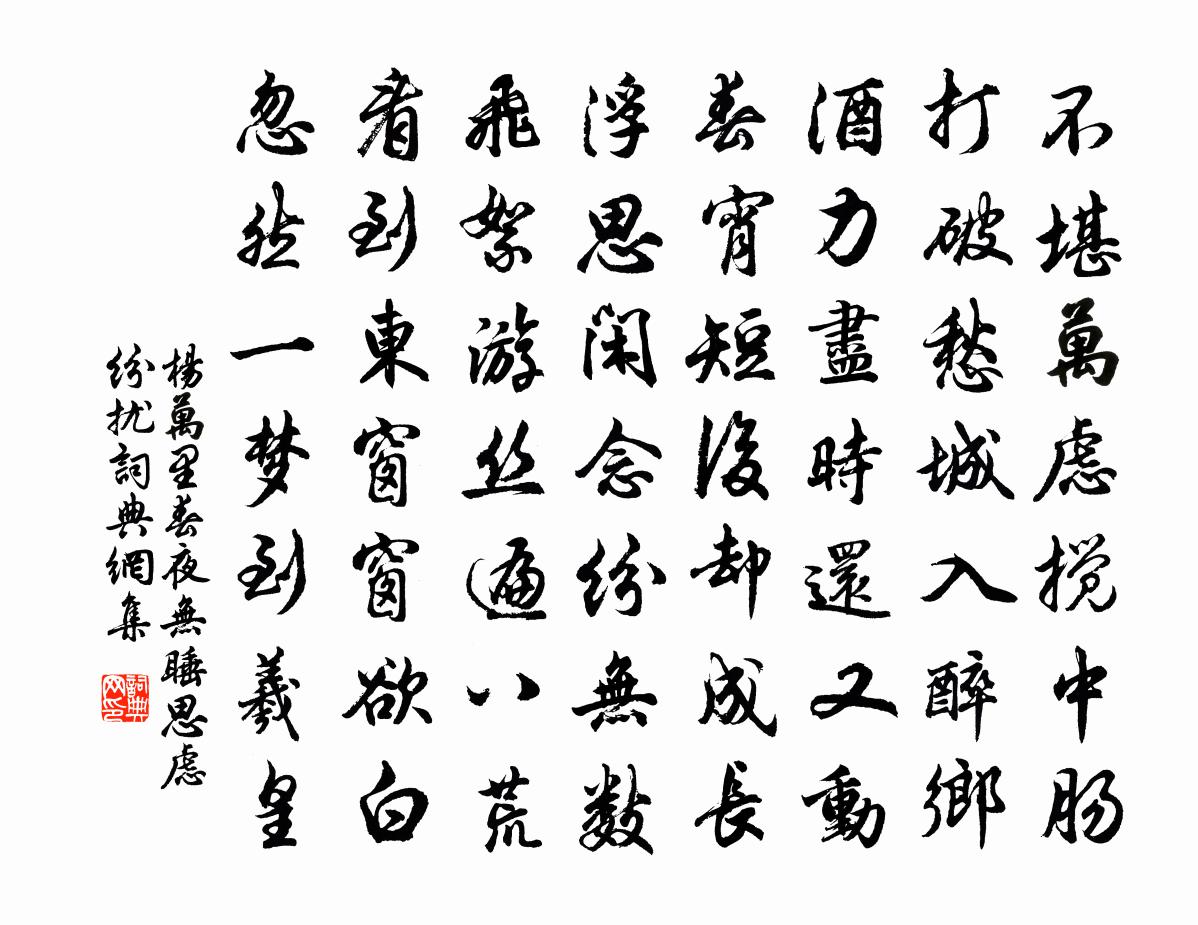 不堪萬慮攪中肠
打破愁城入醉鄉
酒力盡時還又動
春宵短後却成長
浮思閑念紛無数
飛絮游丝遍八荒
看到東窗窗欲白
忽然一梦到羲皇
楊萬里春夜無睡思慮
紛扰詞典網集
詞典网印